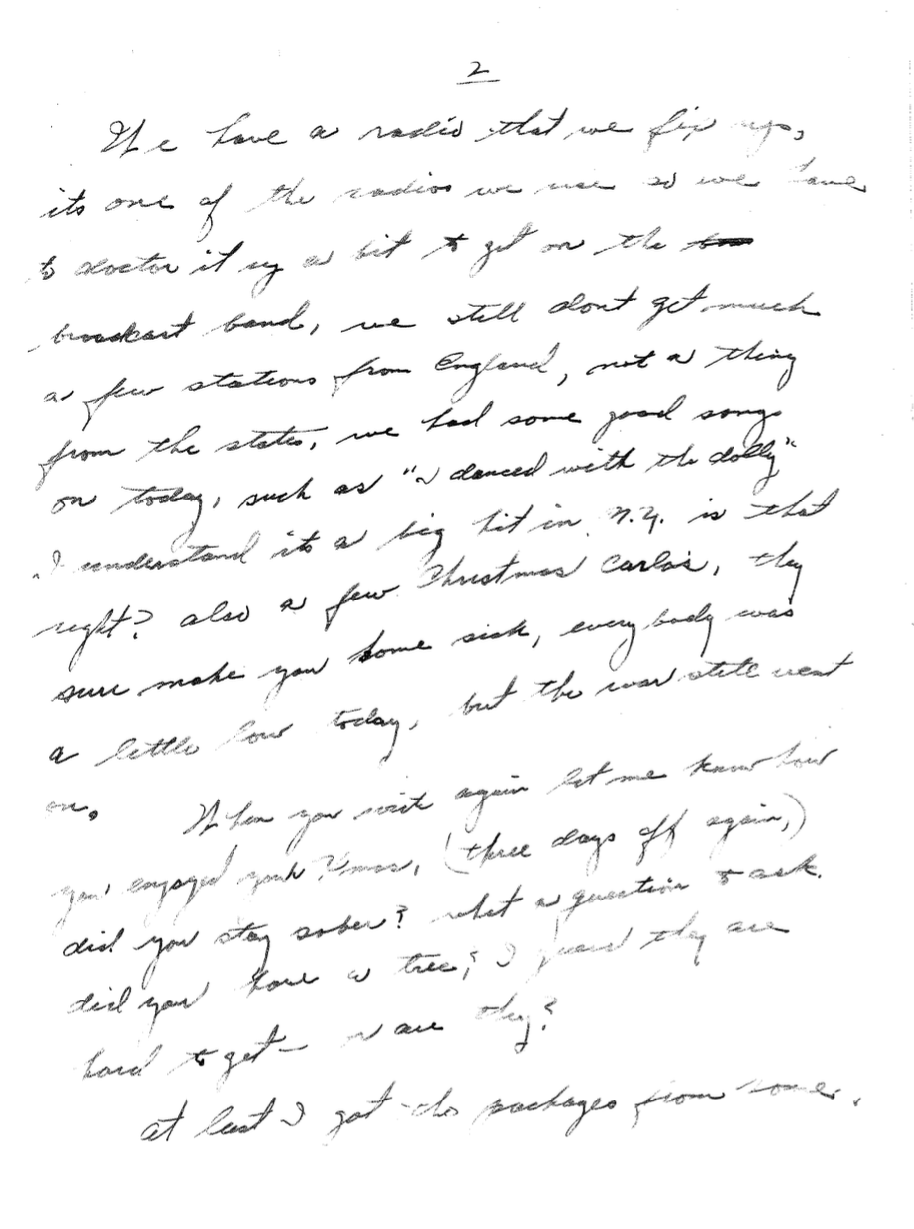 2
We have a radio that we fix up,
its one of the radios we use so we have
to doctor it up a bit to get on the
broadcast band, we still dont get much
a few stations from England, not a thing
from the states, we had some good songs
on today, such as "I danced with the dolly"
I understand its a big hit in N.Y. is that
right? also a few Christmas Carlos, they
sure make you home sick, every body was
a little low today, but the war still went
on. When you write again let me know how
you enjoyed your Xmas, (three days off again,)
did you stay sober? what a question to ask.
did you have a tree, I guess they are
hard to get – are they?
at last I got the packages from home.